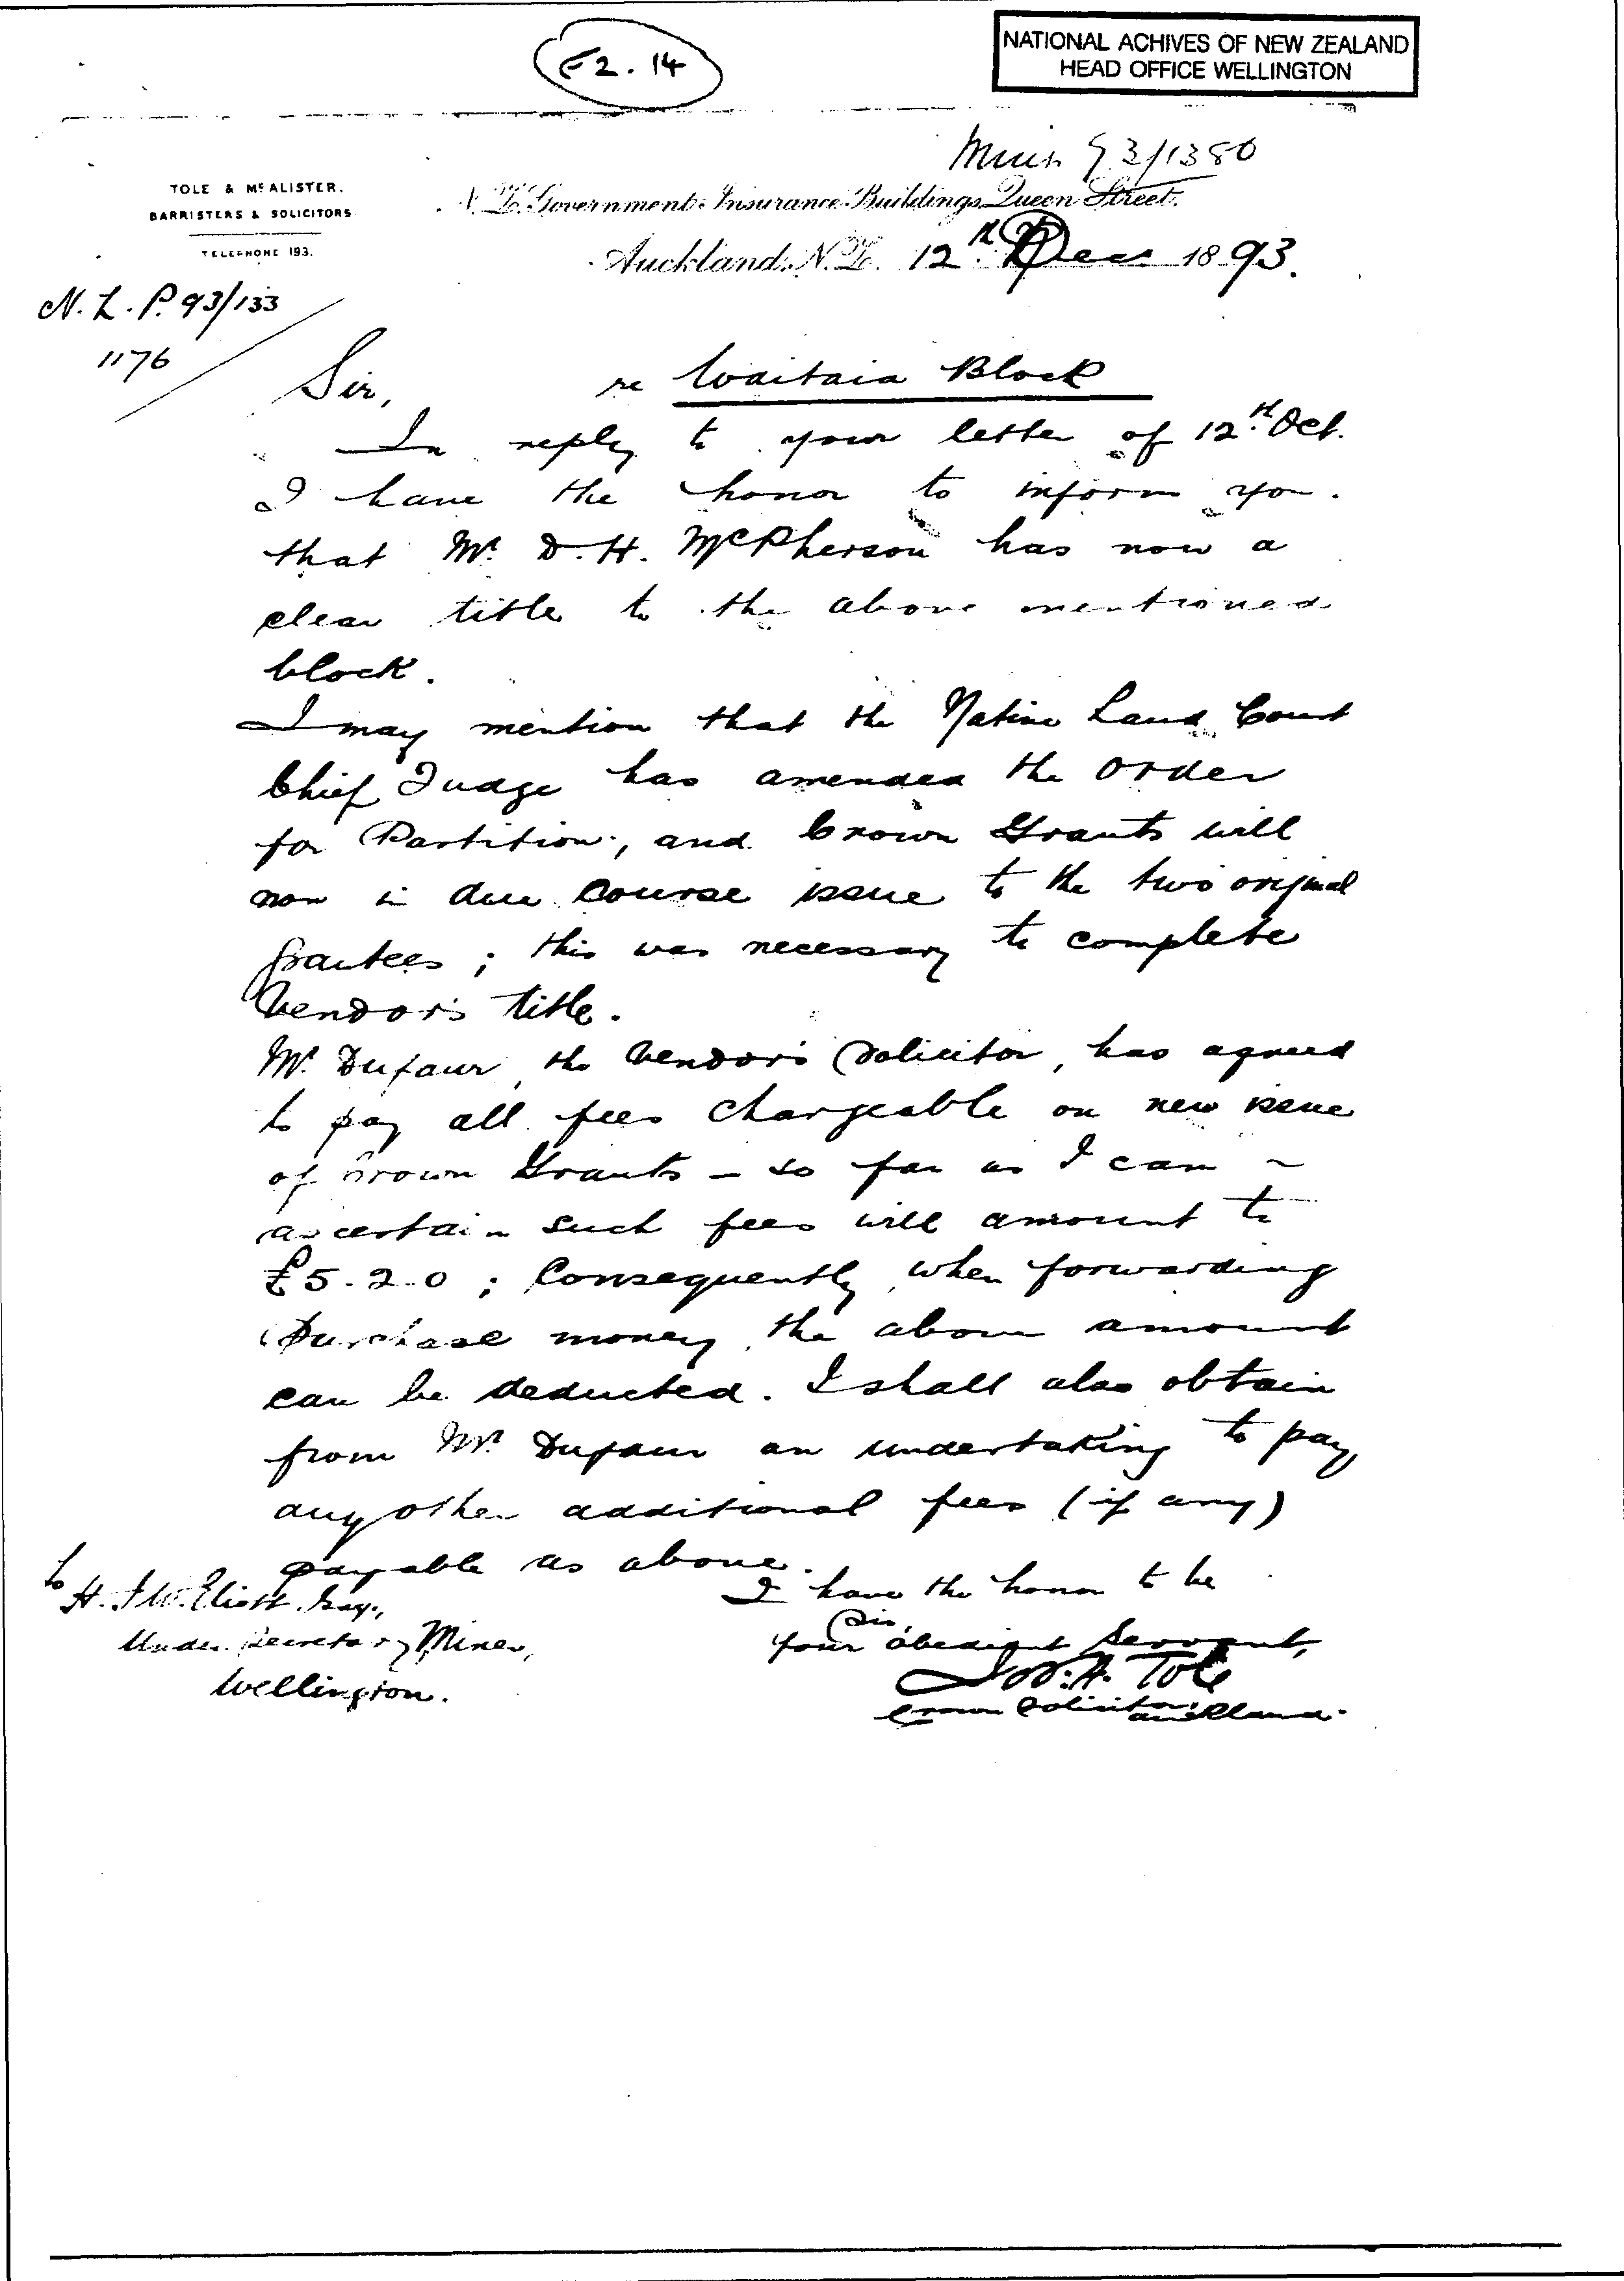 E2.14
NATIONAL ACHIVES OF NEW ZEALAND
HEAD OFFICE WELLINGTON
Mines 93/1380
TOLE & McALISTER.
BARRISTERS & SOLICITORS
TELEPHONE 193.
N.Z. Government Insurance Buildings, Queen Street.
Auckland, N.Z. 12th Decr 1893.
N. L. P. 93/133
1176
Sir, re Waitaia Block
In reply to your letter of 12th Oct.
I have the honor to inform you
that Mr. D. H. McPherson has now a
clear title to the above mentioned
block.
I may mention that the Native Land Court
Chief Judge has amended the order
for Partition, and Crown Grants will
now in due course issue to the two original
grantees; this was necessary to complete
Vendor's title.
Mr. Dufaur, the Vendor's Solicitor, has agreed
to pay all fees chargeable on new issue
of Crown Grants – so far as I can –
ascertain such fees will amount to
£5.2.0; Consequently, when forwarding
Purchase money, the above amount
can be deducted. I shall also obtain
from Mr. Dufaur an undertaking to pay
any other additional fees (if any)
payable as above.
I have the honor to be
Sir,
Your obedient Servant,
Jos. A. Tole
Crown Solicitor,
Auckland.
To
H. J. H. Eliott, Esq.,
Under Secretary Mines,
Wellington.